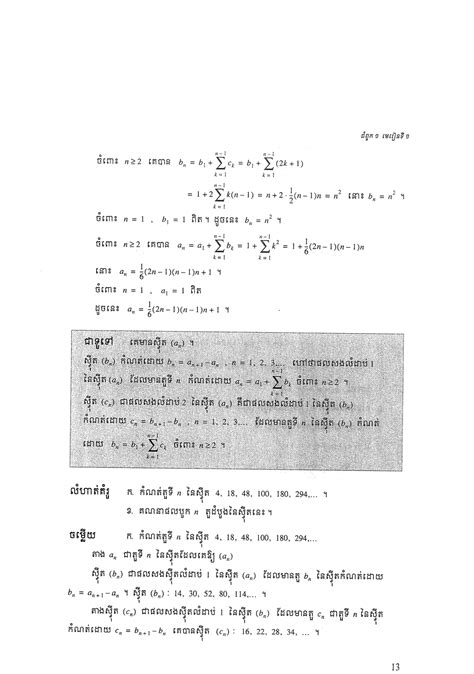 ជំពូក ១ មេរៀនទី ១
ចំពោះ n ≥ 2 គេបាន b_n = b_1 + \sum_{k=1}^{n-1} c_k = b_1 + \sum_{k=1}^{n-1} (2k+1)
= 1 + 2 \sum_{k=1}^{n-1} k(n-1) = n + 2 · \frac{1}{2}(n-1)n = n^2 នោះ b_n = n^2 ។
ចំពោះ n = 1 , b_1 = 1 ពិត ។ ដូចនេះ b_n = n^2 ។
ចំពោះ n ≥ 2 គេបាន a_n = a_1 + \sum_{k=1}^{n-1} b_k = 1 + \sum_{k=1}^{n-1} k^2 = 1 + \frac{1}{6}(2n-1)(n-1)n
នោះ a_n = \frac{1}{6}(2n-1)(n-1)n+1 ។
ចំពោះ n = 1 , a_1 = 1 ពិត
ដូចនេះ a_n = \frac{1}{6}(2n-1)(n-1)n+1 ។
ជាទូទៅ គេមានស្វ៊ីត (a_n) ។
ស្វ៊ីត (b_n) កំណត់ដោយ b_n = a_{n+1} - a_n , n = 1, 2, 3,... ហៅថាផលសងលំដាប់ 1
នៃស្វ៊ីត (a_n) ដែលមានតួទី n កំណត់ដោយ a_n = a_1 + \sum_{k=1}^{n-1} b_k ចំពោះ n ≥ 2 ។
ស្វ៊ីត (c_n) ជាផលសងលំដាប់ 2 នៃស្វ៊ីត (a_n) គឺជាផលសងលំដាប់ 1 នៃស្វ៊ីត (b_n)
កំណត់ដោយ c_n = b_{n+1} - b_n , n = 1, 2, 3,... ដែលមានតួទី n នៃស្វ៊ីត (b_n) កំណត់
ដោយ b_n = b_1 + \sum_{k=1}^{n-1} c_k ចំពោះ n ≥ 2 ។
លំហាត់គំរូ ក. កំណត់តួទី n នៃស្វ៊ីត 4, 18, 48, 100, 180, 294,... ។
ខ. គណនាផលបូក n តួដំបូងនៃស្វ៊ីតនេះ ។
ចម្លើយ ក. កំណត់តួទី n នៃស្វ៊ីត 4, 18, 48, 100, 180, 294,...
តាង a_n ជាតួទី n នៃស្វ៊ីតដែលគេឱ្យ (a_n)
ស្វ៊ីត (b_n) ជាផលសងស្វ៊ីតលំដាប់ 1 នៃស្វ៊ីត (a_n) ដែលមានតួ b_n នៃស្វ៊ីតកំណត់ដោយ
b_n = a_{n+1} - a_n ។ ស្វ៊ីត (b_n) : 14, 30, 52, 80, 114,... ។
តាងស្វ៊ីត (c_n) ជាផលសងស្វ៊ីតលំដាប់ 1 នៃស្វ៊ីត (b_n) ដែលមានតួ c_n ជាតួទី n នៃស្វ៊ីត
កំណត់ដោយ c_n = b_{n+1} - b_n គេបានស្វ៊ីត (c_n) : 16, 22, 28, 34, ... ។
13